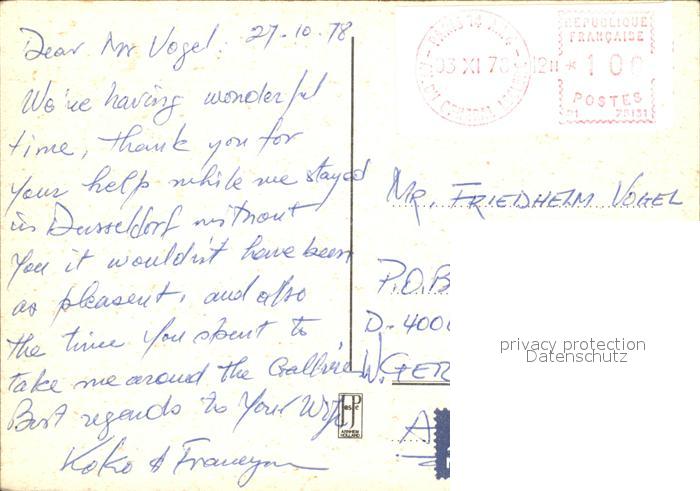 Dear Mr Vogel. 27-10-78
We're having wonderful
time, thank you for
your help while we stayed
in Dusseldorf without
you it wouldn't have been
as pleasent, and also
the time you spent to
take me around the Galleries
Best regards to Your Wife
Koko &
PARIS 14
03 XI 78 12H *
REPUBLIQUE
FRANÇAISE
100
POSTES
MR. FRIEDHELM VOGEL
P.O.B
D-400
W. GER
privacy protection
Datenschutz
ARNHEIM
HOLLAND